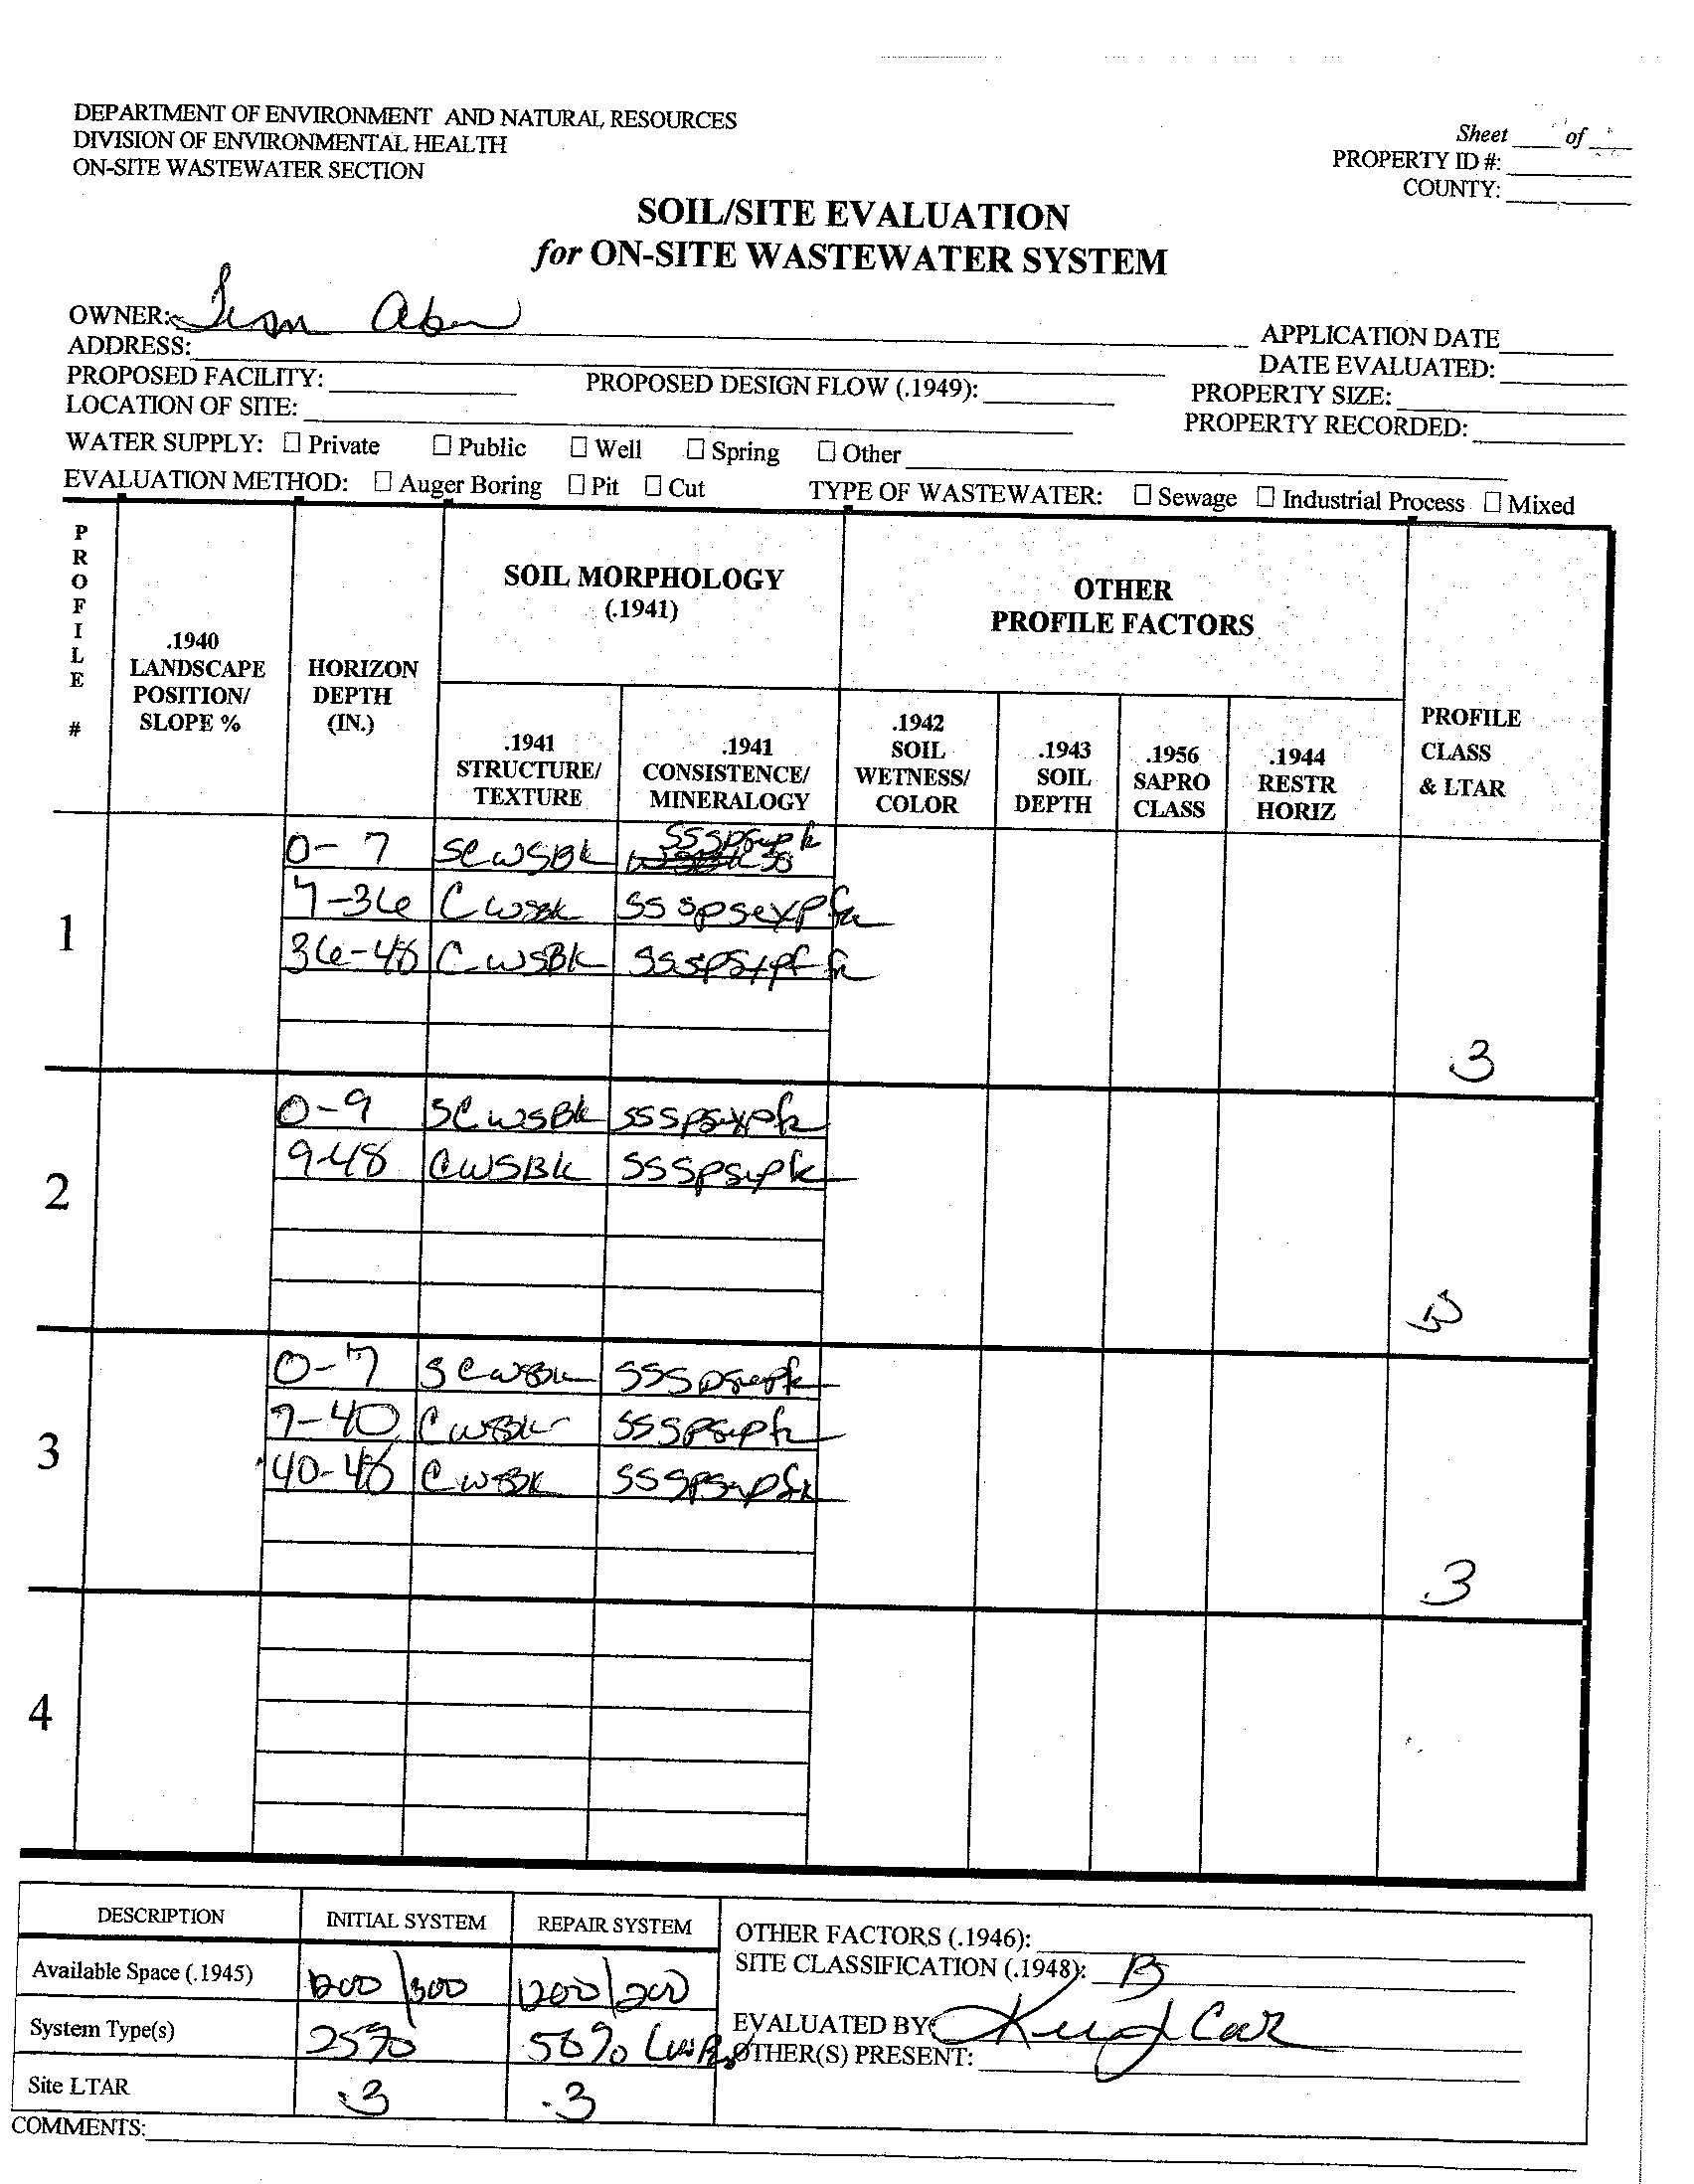 DEPARTMENT OF ENVIRONMENT AND NATURAL RESOURCES
DIVISION OF ENVIRONMENTAL HEALTH
ON-SITE WASTEWATER SECTION
Sheet ____ of ____
PROPERTY ID #:
COUNTY:
SOIL/SITE EVALUATION
for ON-SITE WASTEWATER SYSTEM
OWNER:
ADDRESS:
APPLICATION DATE
DATE EVALUATED:
PROPOSED FACILITY: PROPOSED DESIGN FLOW (.1949):
PROPERTY SIZE:
LOCATION OF SITE:
PROPERTY RECORDED:
WATER SUPPLY: ☐ Private ☐ Public ☐ Well ☐ Spring ☐ Other
EVALUATION METHOD: ☐ Auger Boring ☐ Pit ☐ Cut TYPE OF WASTEWATER: ☐ Sewage ☐ Industrial Process ☐ Mixed
PROFILE #
.1940 LANDSCAPE POSITION/ SLOPE %
HORIZON DEPTH (IN.)
SOIL MORPHOLOGY (.1941)
OTHER PROFILE FACTORS
.1941 STRUCTURE/ TEXTURE
.1941 CONSISTENCE/ MINERALOGY
.1942 SOIL WETNESS/ COLOR
.1943 SOIL DEPTH
.1956 SAPRO CLASS
.1944 RESTR HORIZ
PROFILE CLASS & LTAR
1
0-7 SCWSBK
7-36 CWSBK SSSPSEXPfr
36-48 CWSBK
.3
2
0-9 SCWSBK SSSPSexpfr
9-48 CWSBK
.3
3
0-7 SCWSBK
7-40 CWSBK
40-48 CWSBK
.3
4
DESCRIPTION INITIAL SYSTEM REPAIR SYSTEM
Available Space (.1945) 1200/300 1200/200
System Type(s) 25% 50%
Site LTAR .3 .3
OTHER FACTORS (.1946):
SITE CLASSIFICATION (.1948):
EVALUATED BY:
OTHER(S) PRESENT:
COMMENTS: